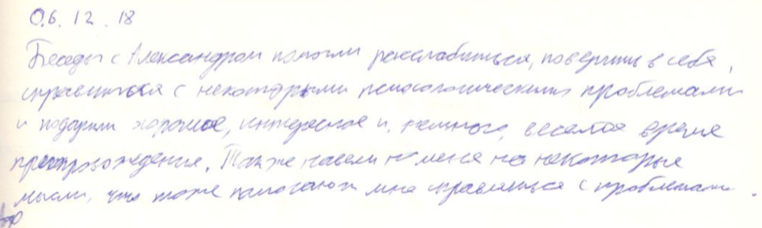 06.12.18
Беседы с Александром помогли расслабиться, поверить в себя,
справиться с некоторыми психологическими проблемами
и подарили хорошее, интересное и, немного, веселое время
препровождение. Также навели меня на некоторые
мысли, что тоже помогают мне справиться с проблемами.